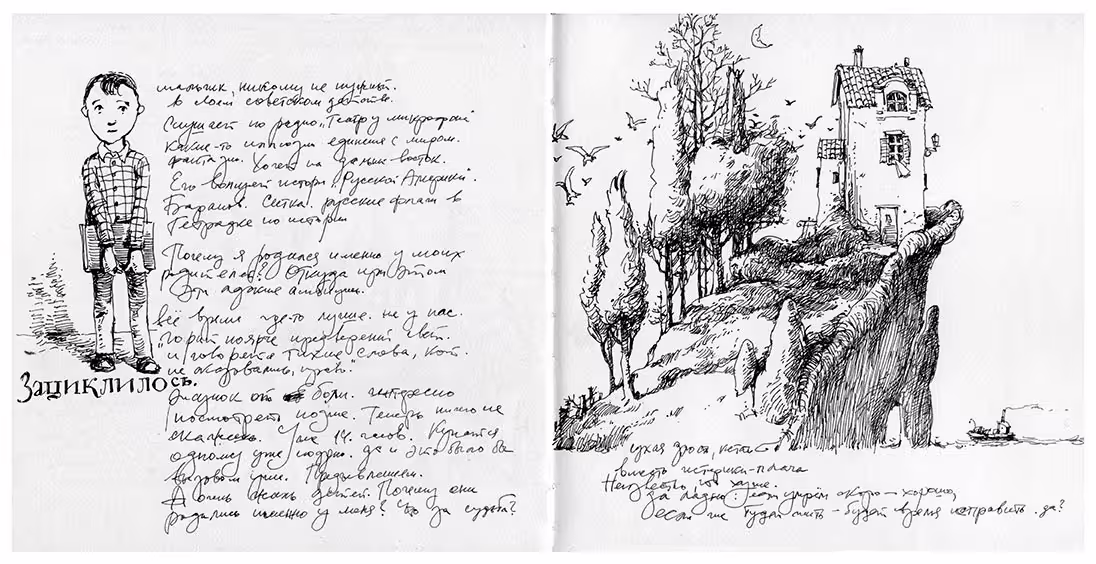 мальчик, никому не нужный.
в моем советском детстве.
Слушает по радио „Театр у микрофона"
какие-то иллюзии единения с миром.
фантазии. Хочет на дальний восток.
Его волнует история „Русской Америки".
Баранов. Ситка. русские флаги в
тетрадке по истории
Почему я родился именно у моих
родителей? Откуда при этом
эти адские амбиции.
всё время где-то лучше. не у нас.
"горит поярче предвечерний свет.
и говорятся тихие слова, кот.
не оказовались, право."
Зациклилось.
Рисунок от боли. интересно
посмотреть позже. Теперь ничего не
скажешь. Уже 14 часов. Купаться
одному уже поздно. да и это было бы
вызовом им. Предъявлением.
А очень жаль детей. Почему они
родились именно у меня? Что за судьба?
сухая дрочь, кстати
вместо истерики-плача
Неизвестно, что хуже.
да ладно: если умрём скоро - хорошо,
если же будем жить - будет время исправить. да?